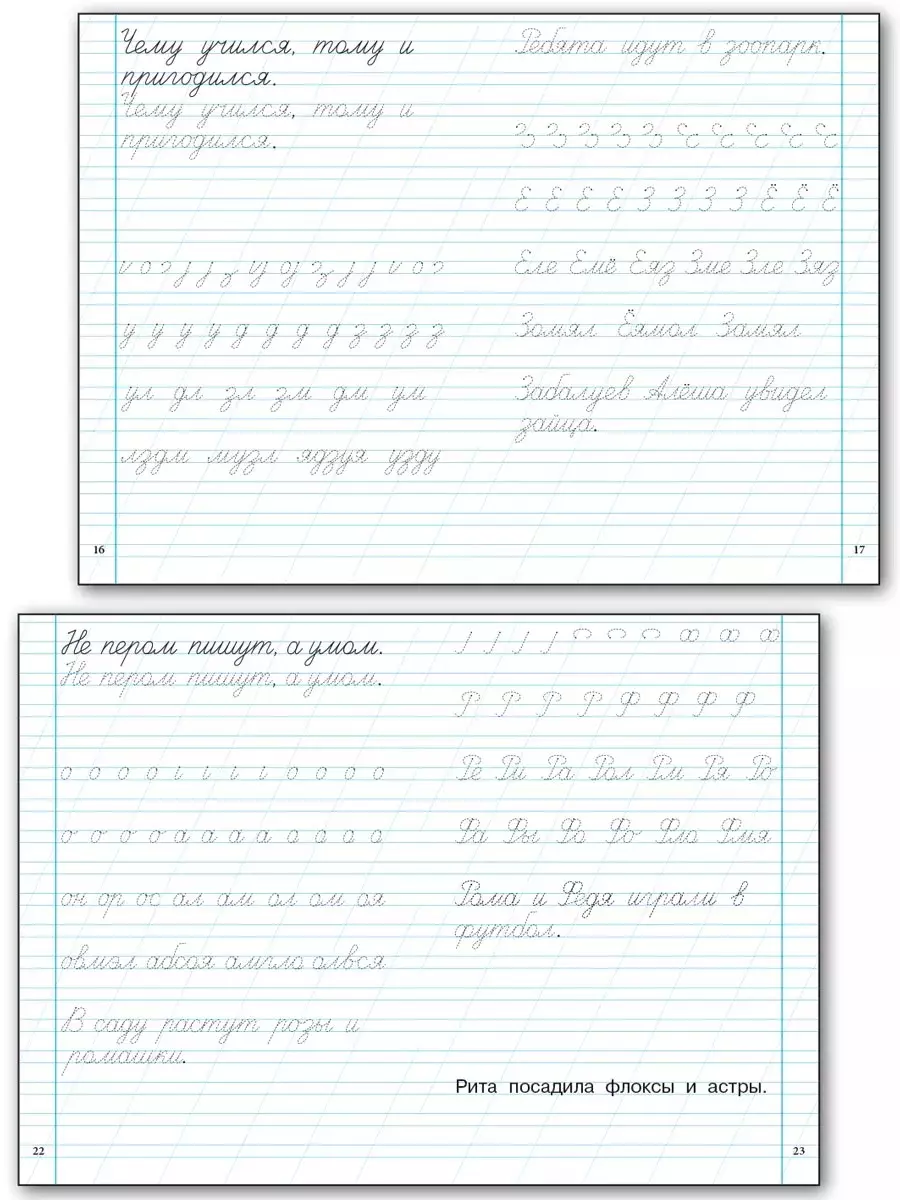 Чему учился, тому и
пригодился.
Чему учился, тому и
пригодился.
у у у у д д д д з з з з
ул дл зл зм дм ум
лздм музл ядзуя узду
16
Ребята идут в зоопарк.
Е Е Е Е З З З З Ё Ё Ё
Еле Емё Еяз Зме Зле Зяз
Зомял Ёямол Замял
Забалуев Алёша увидел
зайца.
17
Не пером пишут, а умом.
Не пером пишут, а умом.
он ор ос ал ам ол ом оя
овмэл абсоя амгло олвся
В саду растут розы и
ромашки.
22
Р Р Р Р Ф Ф Ф Ф
Рома и Федя играли в
футбол.
Рита посадила флоксы и астры.
23